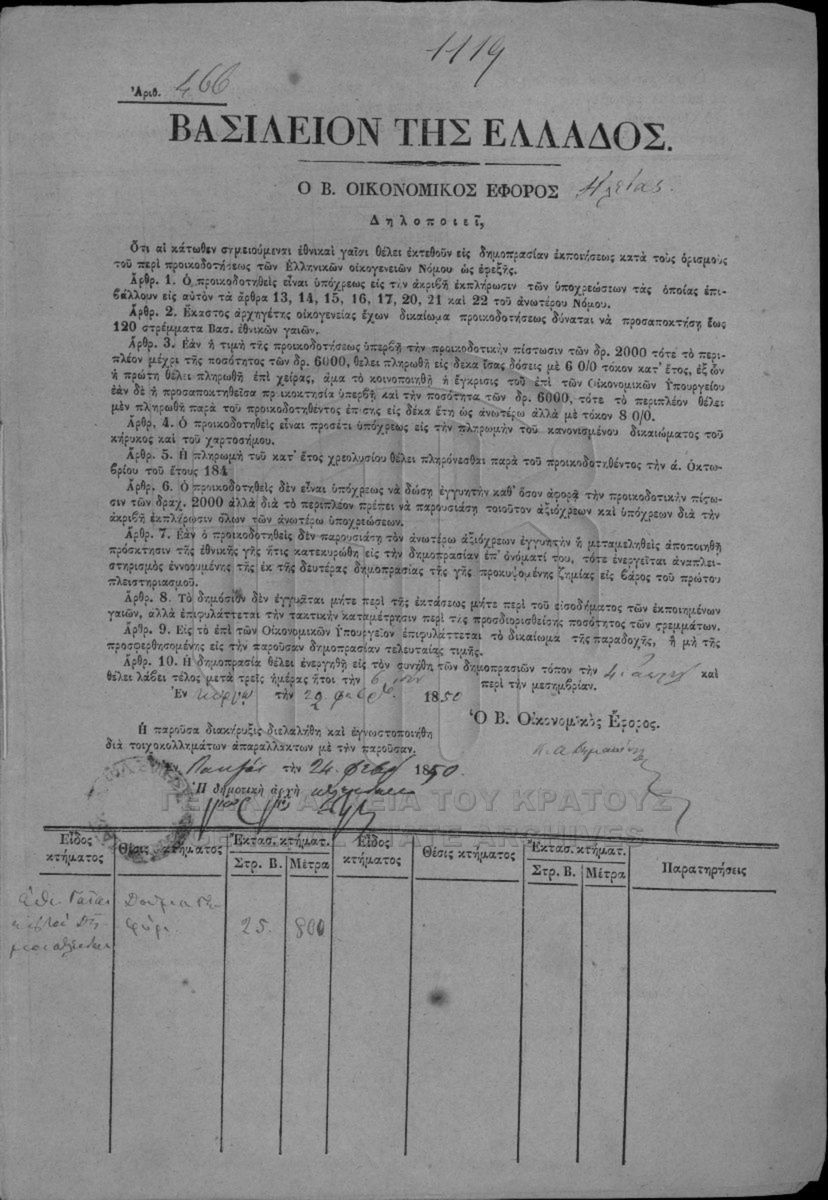 1119
Ἀριθ. 466
ΒΑΣΙΛΕΙΟΝ ΤΗΣ ΕΛΛΑΔΟΣ.
Ο Β. ΟΙΚΟΝΟΜΙΚΟΣ ΕΦΟΡΟΣ Ηλείας.
Δηλοποιεῖ,
Ὅτι αἱ κάτωθεν σημειούμεναι ἐθνικαὶ γαῖαι θέλει ἐκτεθοῦν εἰς δημοπρασίαν ἐκποιήσεως κατὰ τοὺς ὁρισμοὺς
τοῦ περὶ προικοδοτήσεως τῶν Ἑλληνικῶν οἰκογενειῶν Νόμου ὡς ἐφεξῆς.
Ἄρθρ. 1. Ὁ προικοδοτηθεὶς εἶναι ὑπόχρεως εἰς τὴν ἀκριβῆ ἐκπλήρωσιν τῶν ὑποχρεώσεων τὰς ὁποίας ἐπι-
βάλλουν εἰς αὐτὸν τὰ ἄρθρα 13, 14, 15, 16, 17, 20, 21 καὶ 22 τοῦ ἀνωτέρω Νόμου.
Ἄρθρ. 2. Ἕκαστος ἀρχηγέτης οἰκογενείας ἔχων δικαίωμα προικοδοτήσεως δύναται νὰ προσαποκτήσῃ ἕως
120 στρέμματα Βασ. ἐθνικῶν γαιῶν.
Ἄρθρ. 3. Ἐὰν ἡ τιμὴ τῆς προικοδοτήσεως ὑπερβῇ τὴν προικοδοτικὴν πίστωσιν τῶν δρ. 2000 τότε τὸ περι-
πλέον μέχρι τῆς ποσότητος τῶν δρ. 6000, θέλει πληρωθῆ εἰς δέκα ἴσας δόσεις μὲ 6 0/0 τόκον κατ' ἔτος, ἐξ ὧν
ἡ πρώτη θέλει πληρωθῆ ἐπὶ χείρας, ἅμα τὸ κοινοποιηθῇ ἡ ἔγκρισις τοῦ ἐπὶ τῶν Οἰκονομικῶν Ὑπουργείου
ἐὰν δὲ ἡ προσαποκτηθεῖσα προικοκτησία ὑπερβῇ καὶ τὴν ποσότητα τῶν δρ. 6000, τότε τὸ περιπλέον θέλει
μὲν πληρωθῆ παρὰ τοῦ προικοδοτηθέντος ἐπίσης εἰς δέκα ἔτη ὡς ἀνωτέρω ἀλλὰ μὲ τόκον 8 0/0.
Ἄρθρ. 4. Ὁ προικοδοτηθεὶς εἶναι προσέτι ὑπόχρεως εἰς τὴν πληρωμὴν τοῦ κανονισμένου δικαιώματος τοῦ
κήρυκος καὶ τοῦ χαρτοσήμου.
Ἄρθρ. 5. Ἡ πληρωμὴ τοῦ κατ' ἔτος χρεολυσίου θέλει πληρόνεσθαι παρὰ τοῦ προικοδοτηθέντος τὴν ά. Ὀκτω-
βρίου τοῦ ἔτους 184
Ἄρθρ. 6. Ὁ προικοδοτηθεὶς δὲν εἶναι ὑπόχρεως νὰ δώσῃ ἐγγυητὴν καθ' ὅσον ἀφορᾷ τὴν προικοδοτικὴν πίστω-
σιν τῶν δραχ. 2000 ἀλλὰ διὰ τὸ περιπλέον πρέπει νὰ παρουσιάσῃ τοιοῦτον ἀξιόχρεων καὶ ὑπόχρεων διὰ τὴν
ἀκριβῆ ἐκπλήρωσιν ὅλων τῶν ἀνωτέρω ὑποχρεώσεων.
Ἄρθρ. 7. Ἐὰν ὁ προικοδοτηθεὶς δὲν παρουσιάσῃ τὸν ἀνωτέρω ἀξιόχρεων ἐγγυητὴν ἢ μεταμεληθεὶς ἀποποιηθῇ
πρόσκτησιν τῆς ἐθνικῆς γῆς ἥτις κατεκυρώθη εἰς τὴν δημοπρασίαν ἐπ' ὀνόματί του, τότε ἐνεργεῖται ἀναπλει-
στηρισμὸς ἐννοουμένης τῆς ἐκ τῆς δευτέρας δημοπρασίας τῆς γῆς προκυψομένης ζημίας εἰς βάρος τοῦ πρώτου
πλειστηριασμοῦ.
Ἄρθρ. 8. Τὸ δημόσιον δὲν ἐγγυᾶται μήτε περὶ τῆς ἐκτάσεως μήτε περὶ τοῦ εἰσοδήματος τῶν ἐκποιημένων
γαιῶν, ἀλλὰ ἐπιφυλάττεται τὴν τακτικὴν καταμέτρησιν περὶ τῆς προσδιορισθείσης ποσότητος τῶν στρεμμάτων.
Ἄρθρ. 9. Εἰς τὸ ἐπὶ τῶν Οἰκονομικῶν Ὑπουργεῖον ἐπιφυλάττεται τὸ δικαίωμα τῆς παραδοχῆς, ἢ μὴ τῆς
προσφερθησομένης εἰς τὴν παροῦσαν δημοπρασίαν τελευταίας τιμῆς.
Ἄρθρ. 10. Ἡ δημοπρασία θέλει ἐνεργηθῆ εἰς τὸν συνήθη τῶν δημοπρασιῶν τόπον τὴν 4 καὶ
θέλει λάβει τέλος μετὰ τρεῖς ἡμέρας ἤτοι τὴν 6 περὶ τὴν μεσημβρίαν.
Ἐν Πύργῳ τὴν 1850
Ὁ Β. Οἰκονομικὸς Ἔφορος.
Ἡ παροῦσα διακήρυξις διελαλήθη καὶ ἐγνωστοποιήθη
διὰ τοιχοκολλημάτων ἀπαραλλάκτων μὲ τὴν παροῦσαν.
τὴν 24 1850.
Ἡ δημοτικὴ ἀρχὴ
ΓΕΝΙΚΑ ΑΡΧΕΙΑ ΤΟΥ ΚΡΑΤΟΥΣ
Εἶδος κτήματος Θέσις κτήματος Ἔκτασ. κτήματ. Εἶδος κτήματος Θέσις κτήματος Ἔκτασ. κτήματ. Παρατηρήσεις
Στρ. Β. Μέτρα Στρ. Β. Μέτρα
25 800